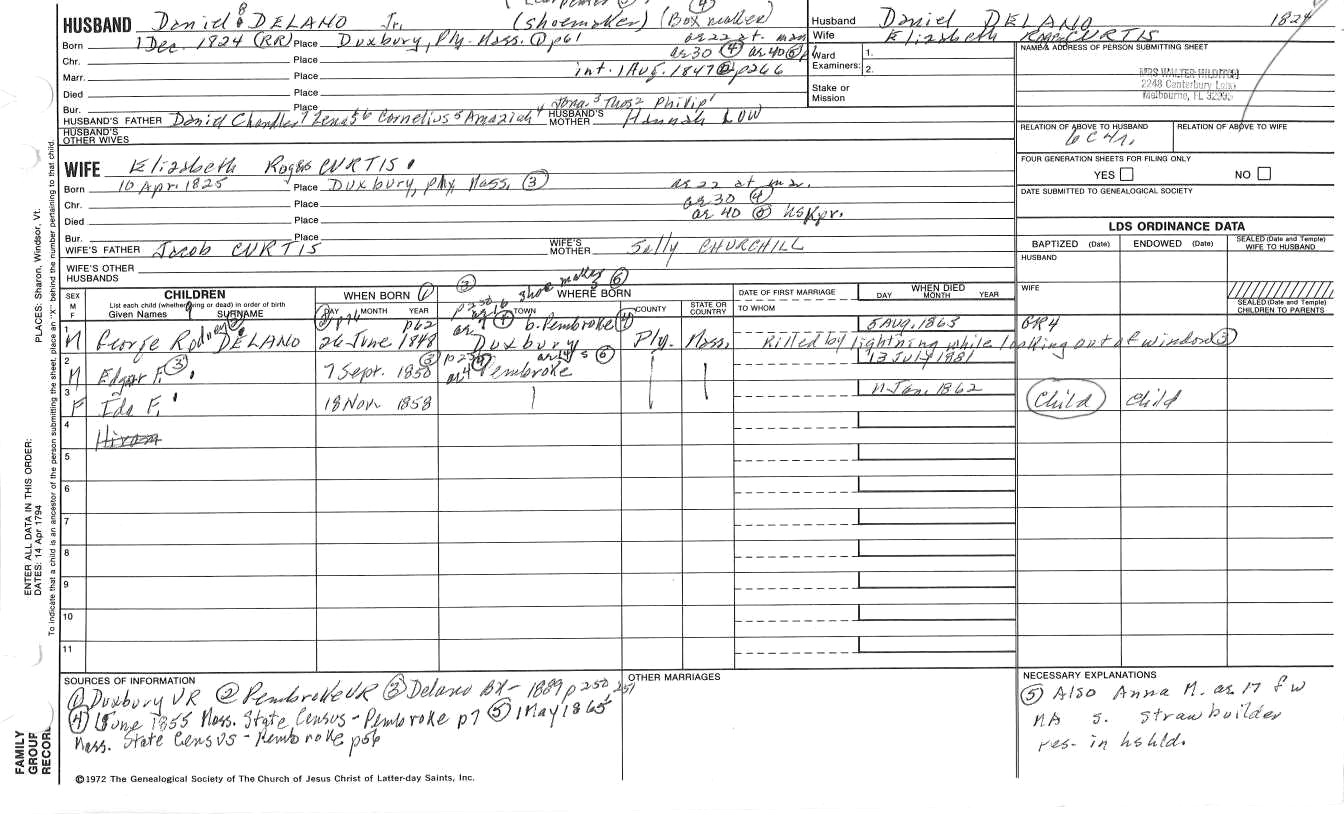 HUSBAND Daniel 8 DELANO Jr. (Shoemaker) (Box maker) ④
Born 1 Dec. 1824 (RR) Place Duxbury, Ply. Mass. ① p61 ae 22 at. mar
ae 30 ④ ae 40 ⑤
Chr. Place
Marr. Place int. 1 Aug. 1847 ② p266
Died Place
Bur. Place Jona 3 Thos 2 Philip 1
HUSBAND'S FATHER Daniel Chandler 7 Zenas 6 Cornelius 5 Amaziah 4 HUSBAND'S MOTHER Hannah LOW
HUSBAND'S OTHER WIVES
Husband Daniel DELANO 1824
Wife Elizabeth Rogers CURTIS
Ward Examiners: 1.
2.
Stake or Mission
NAME & ADDRESS OF PERSON SUBMITTING SHEET
MRS WALTER
2248 Canterbury Lane
Melbourne, FL
RELATION OF ABOVE TO HUSBAND RELATION OF ABOVE TO WIFE
6C4r.
FOUR GENERATION SHEETS FOR FILING ONLY
YES NO
DATE SUBMITTED TO GENEALOGICAL SOCIETY
WIFE Elizabeth Rogers CURTIS
Born 10 Apr. 1825 Place Duxbury, Ply. Mass. ③ ae 22 at mar.
Chr. Place ae 30 ④
Died Place ae 40 ⑤ hskpr.
Bur. Place
WIFE'S FATHER Jacob CURTIS WIFE'S MOTHER Sally CHURCHILL
WIFE'S OTHER HUSBANDS
LDS ORDINANCE DATA
BAPTIZED (Date) ENDOWED (Date) SEALED (Date and Temple) WIFE TO HUSBAND
HUSBAND
WIFE
SEALED (Date and Temple) CHILDREN TO PARENTS
SEX M F CHILDREN WHEN BORN ① WHERE BORN DATE OF FIRST MARRIAGE WHEN DIED
List each child (whether living or dead) in order of birth
Given Names SURNAME DAY MONTH YEAR TOWN COUNTY STATE OR COUNTRY TO WHOM DAY MONTH YEAR
③ p250 shoe maker ⑥
1 M George Rodney 9 DELANO 26 June 1848 p62 b. Pembroke ④ Duxbury Ply. Mass. 5 Aug. 1863 GR4
Killed by lightning while looking out of window ③
2 M Edgar F. ③ 7 Sept. 1850 ③ ae 4 Pembroke 13 July 1881
3 F Ida F. 18 Nov. 1858 11 Jan. 1862 Child Child
4 Hiram
5
6
7
8
9
10
11
SOURCES OF INFORMATION
① Duxbury VR ② Pembroke VR ③ Delano BX - 1889 p 250, 251
④ 1 June 1855 Mass. State Census - Pembroke p7 ⑤ 1 May 1865
Mass. State Census - Pembroke p56
OTHER MARRIAGES
NECESSARY EXPLANATIONS
⑤ Also Anna M. ae 17 f w
MA s. Strawbuilder
res. in hshld.
©1972 The Genealogical Society of The Church of Jesus Christ of Latter-day Saints, Inc.
FAMILY GROUP RECORD
ENTER ALL DATA IN THIS ORDER:
DATES: 14 Apr 1794
PLACES: Sharon, Windsor, Vt.
To indicate that a child is an ancestor of the person submitting the sheet, place an "X" behind the number pertaining to that child.